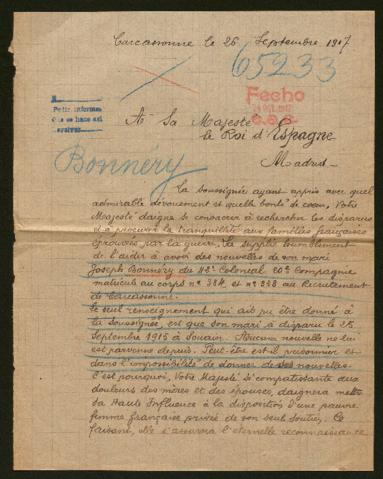 Carcassonne le 26 Septembre 1917
65233
Fecho
A Sa Majesté
le Roi d'Espagne
Madrid
Bonnéry
La Soussignée ayant appris avec quel
admirable dévouement et quelle bonté de cœur, Votre
Majesté daigne se consacrer à rechercher les disparus
et à procurer la tranquillité aux familles françaises
éprouvées par la guerre. La supplie humblement
de l'aider à avoir des nouvelles de son mari
Joseph Bonnery du Colonial 20e Compagnie
matricule au corps no 384 et no au Recrutement
de Carcassonne.
Le seul renseignement qui ait pu être donné à
la Soussignée, est que son mari a disparu le 25
Septembre 1915 à Souain. Aucune nouvelle ne lui
est parvenue depuis. Peut-être est-il prisonnier et
dans l'impossibilité de donner de ses nouvelles.
C'est pourquoi, Votre Majesté si compatissante aux
douleurs des mères et des épouses, daignera mettre
sa Haute Influence à la disposition d'une pauvre
femme française privée de son seul soutien. Ce
faisant, elle s'assurera l'éternelle reconnaissance